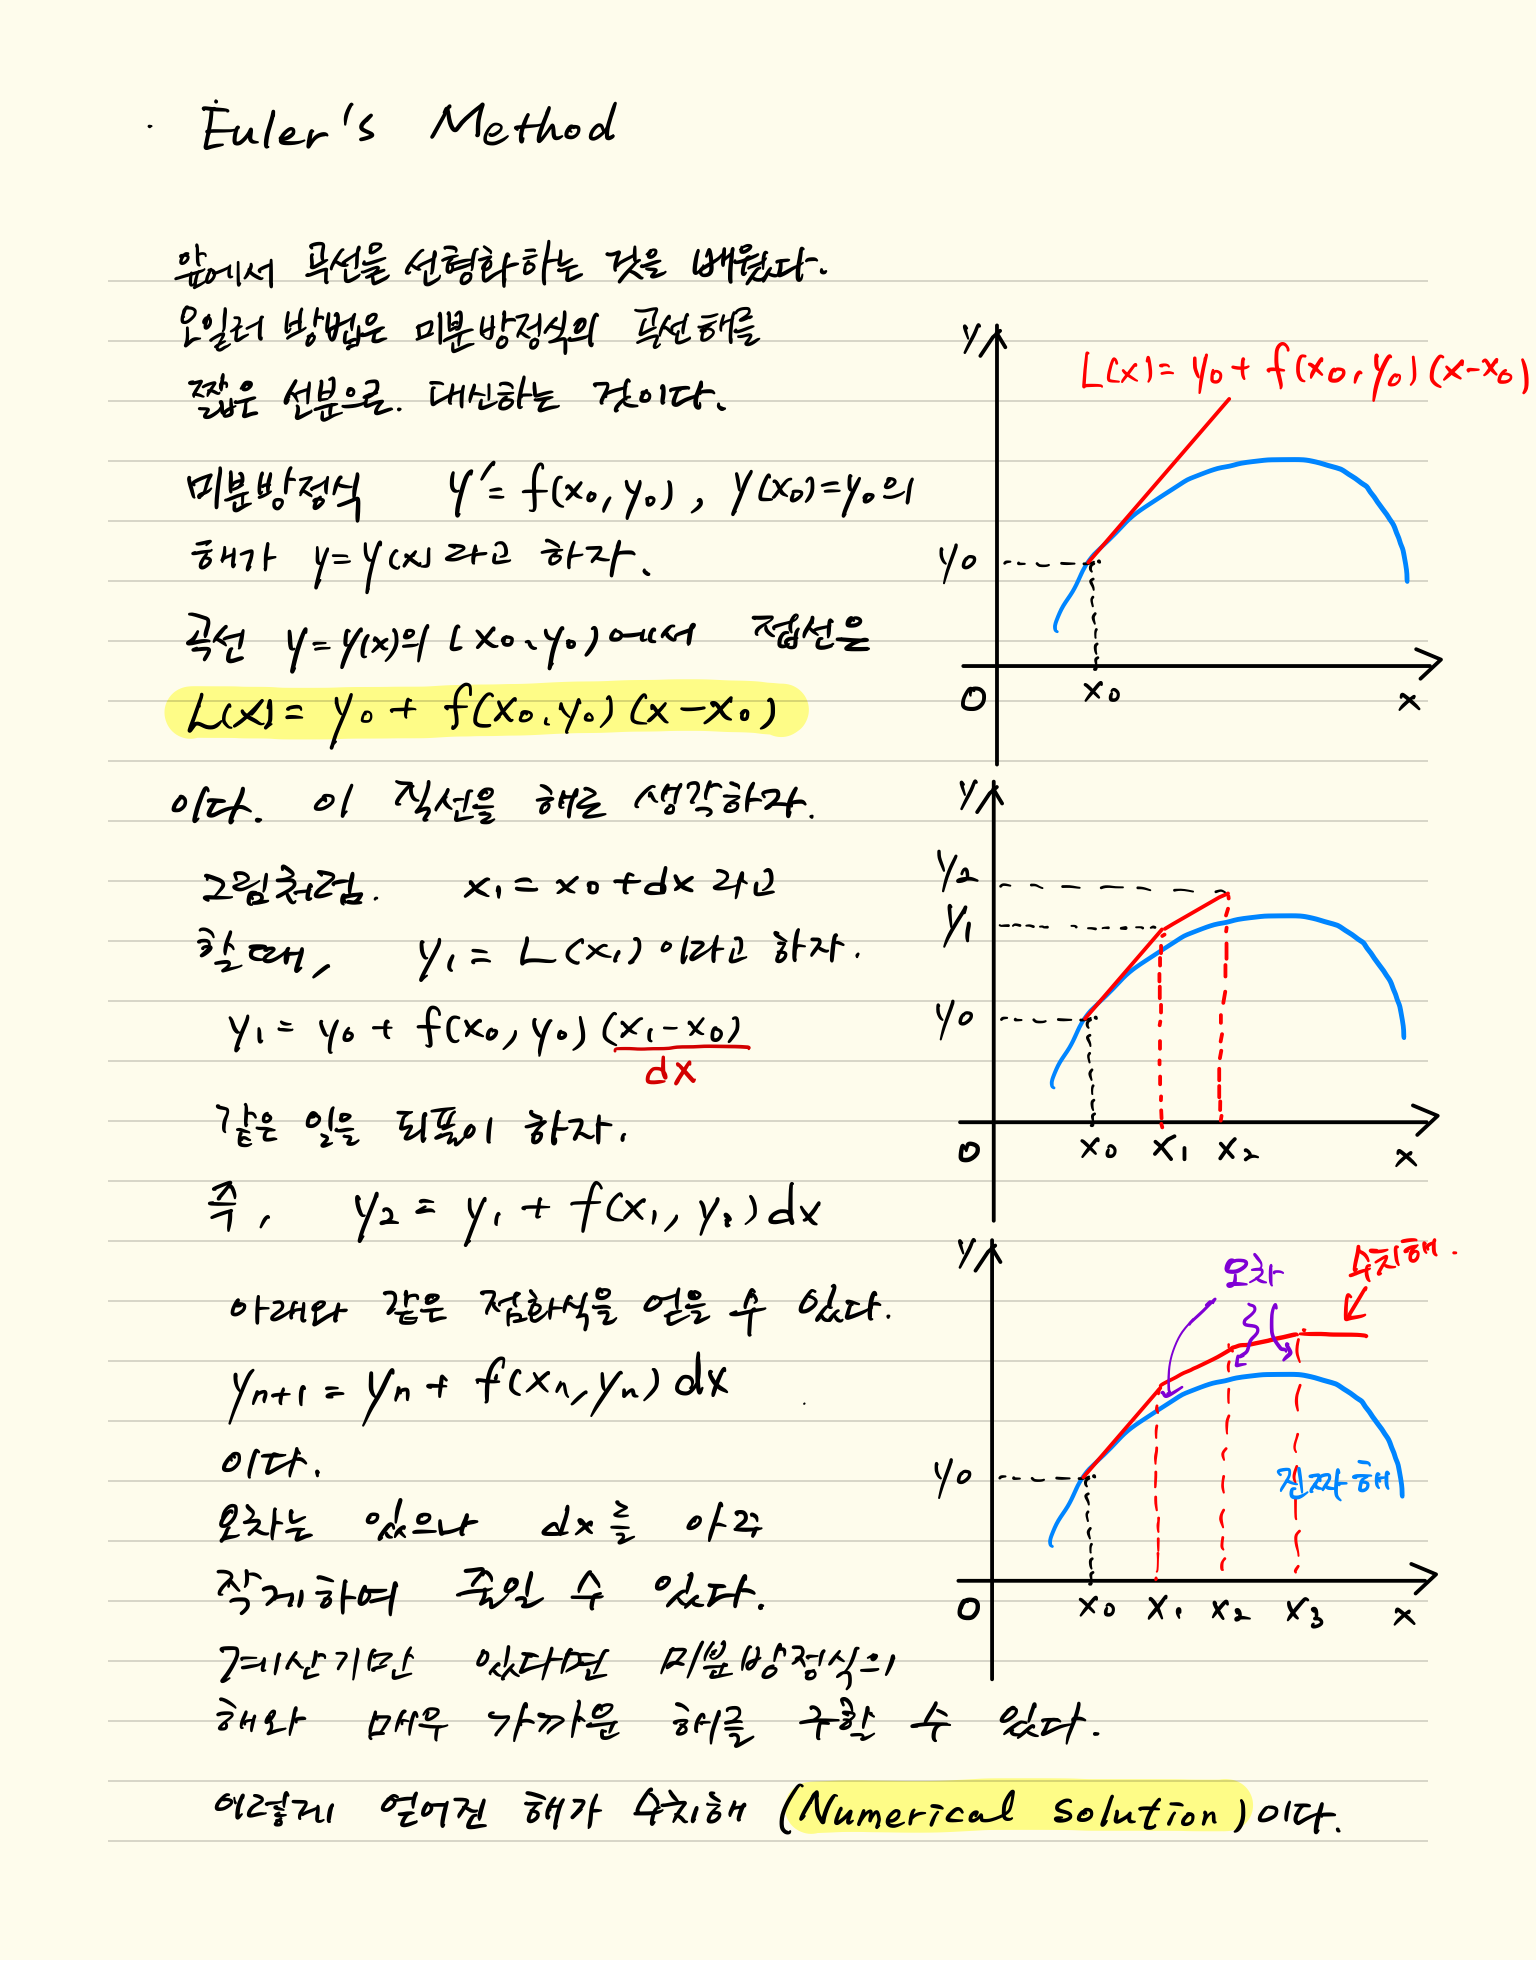 · Euler's Method
앞에서 곡선을 선형화하는 것을 배웠다.
오일러 방법은 미분방정식의 곡선해를
짧은 선분으로. 대신하는 것이다.
미분방정식 y' = f(x₀, y₀), y(x₀)=y₀의
해가 y=y(x) 라고 하자.
곡선 y=y(x)의 (x₀, y₀)에서 접선은
L(x) = y₀ + f(x₀, y₀)(x-x₀)
이다. 이 직선을 해로 생각하자.
그림처럼. x₁ = x₀ + dx 라고
할 때, y₁ = L(x₁) 이라고 하자.
y₁ = y₀ + f(x₀, y₀)(x₁-x₀)
dx
같은 일을 되풀이 하자.
즉, y₂ = y₁ + f(x₁, y₁)dx
아래와 같은 점화식을 얻을 수 있다.
yn+1 = yn + f(xn, yn) dx
이다.
오차는 있으나 dx를 아주
작게하여 줄일 수 있다.
계산기만 있다면 미분방정식의
해와 매우 가까운 해를 구할 수 있다.
이렇게 얻어진 해가 수치해 (Numerical solution)이다.
y
L(x) = y₀ + f(x₀, y₀)(x-x₀)
y₀
O x₀ x
y
y₂
y₁
y₀
O x₀ x₁ x₂ x
y
오차
수치해.
y₀
진짜 해
O x₀ x₁ x₂ x₃ x